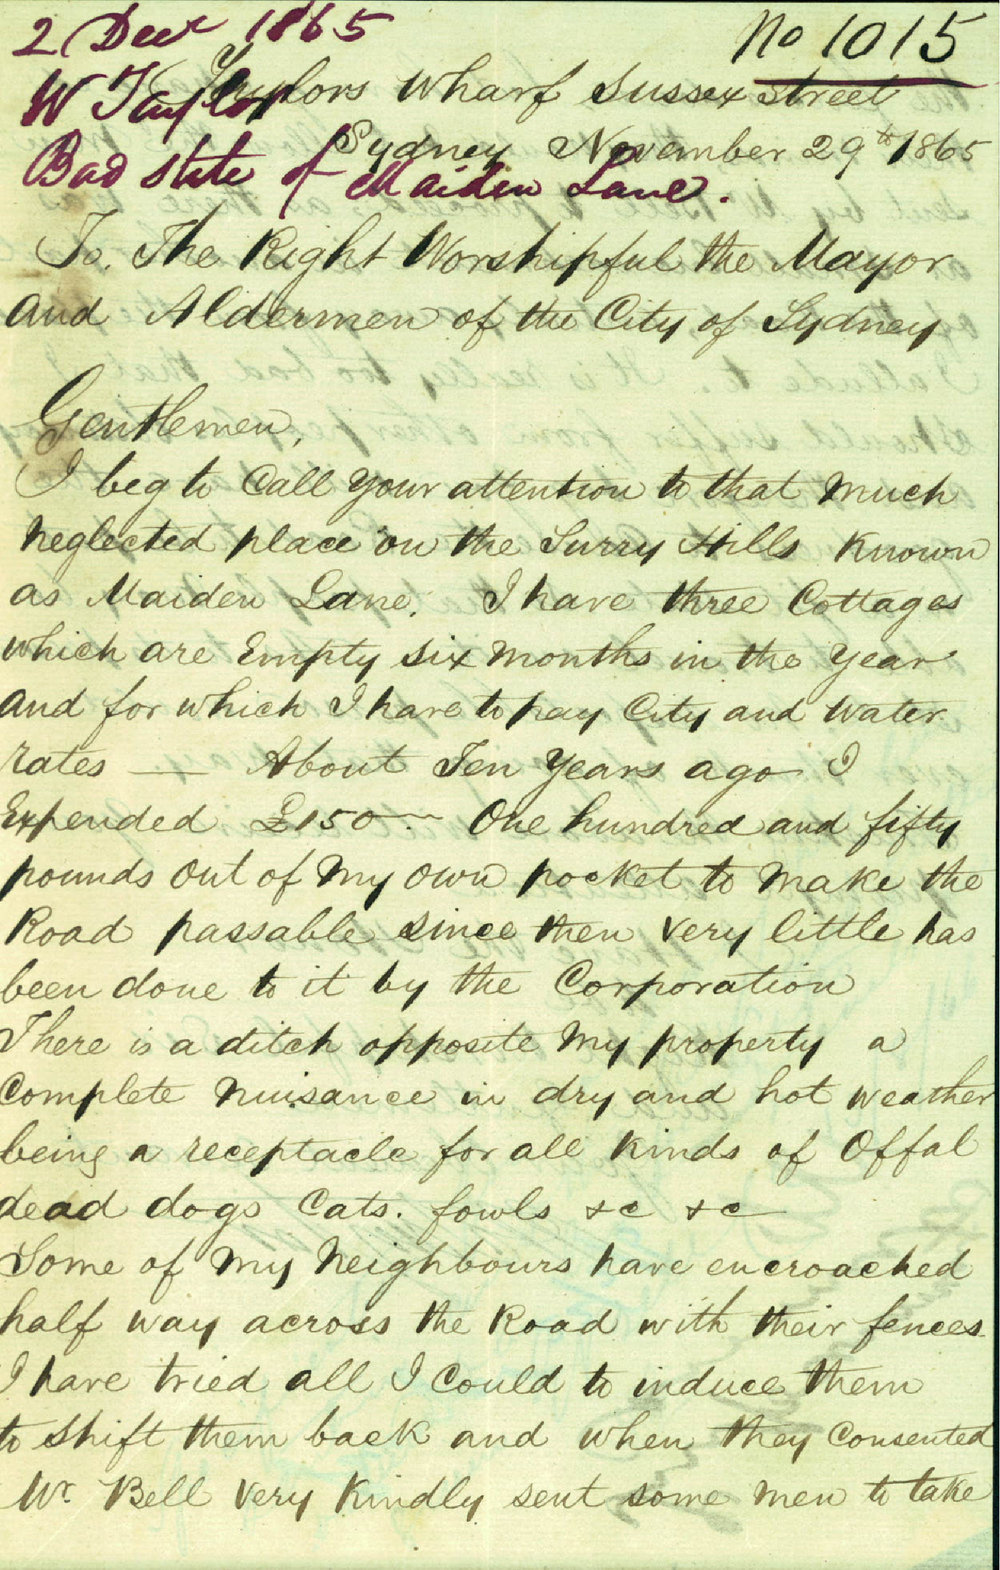 2 Decr 1865
No 1015
Taylors Wharf Sussex Street
W Taylor
Sydney November 29th 1865
Bad state of Maiden Lane.
To. The Right Worshipful the Mayor
and Aldermen of the City of Sydney
Gentlemen,
I beg to Call Your attention to that Much
neglected place on the Surry Hills Known
as Maiden Lane. I have three Cottages
which are Empty six months in the Year
and for which I have to pay City and Water
rates — About Ten Years ago I
Expended £150 — One hundred and fifty
pounds out of My own pocket to Make the
Road passable since then very little has
been done to it by the Corporation
There is a ditch opposite My property a
Complete Nuisance in dry and hot weather
being a receptacle for all Kinds of Offal
dead dogs Cats. fowls &c &c
Some of My Neighbours have encroached
half way across the Road with their fences
I have tried all I Could to induce them
to shift them back and when they Consented
Mr. Bell very Kindly sent some men to take